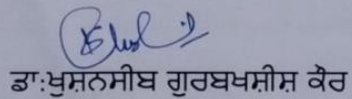 ਡਾ:ਖੁਸ਼ਨਸੀਬ ਗੁਰਬਖਸ਼ੀਸ਼ ਕੌਰ